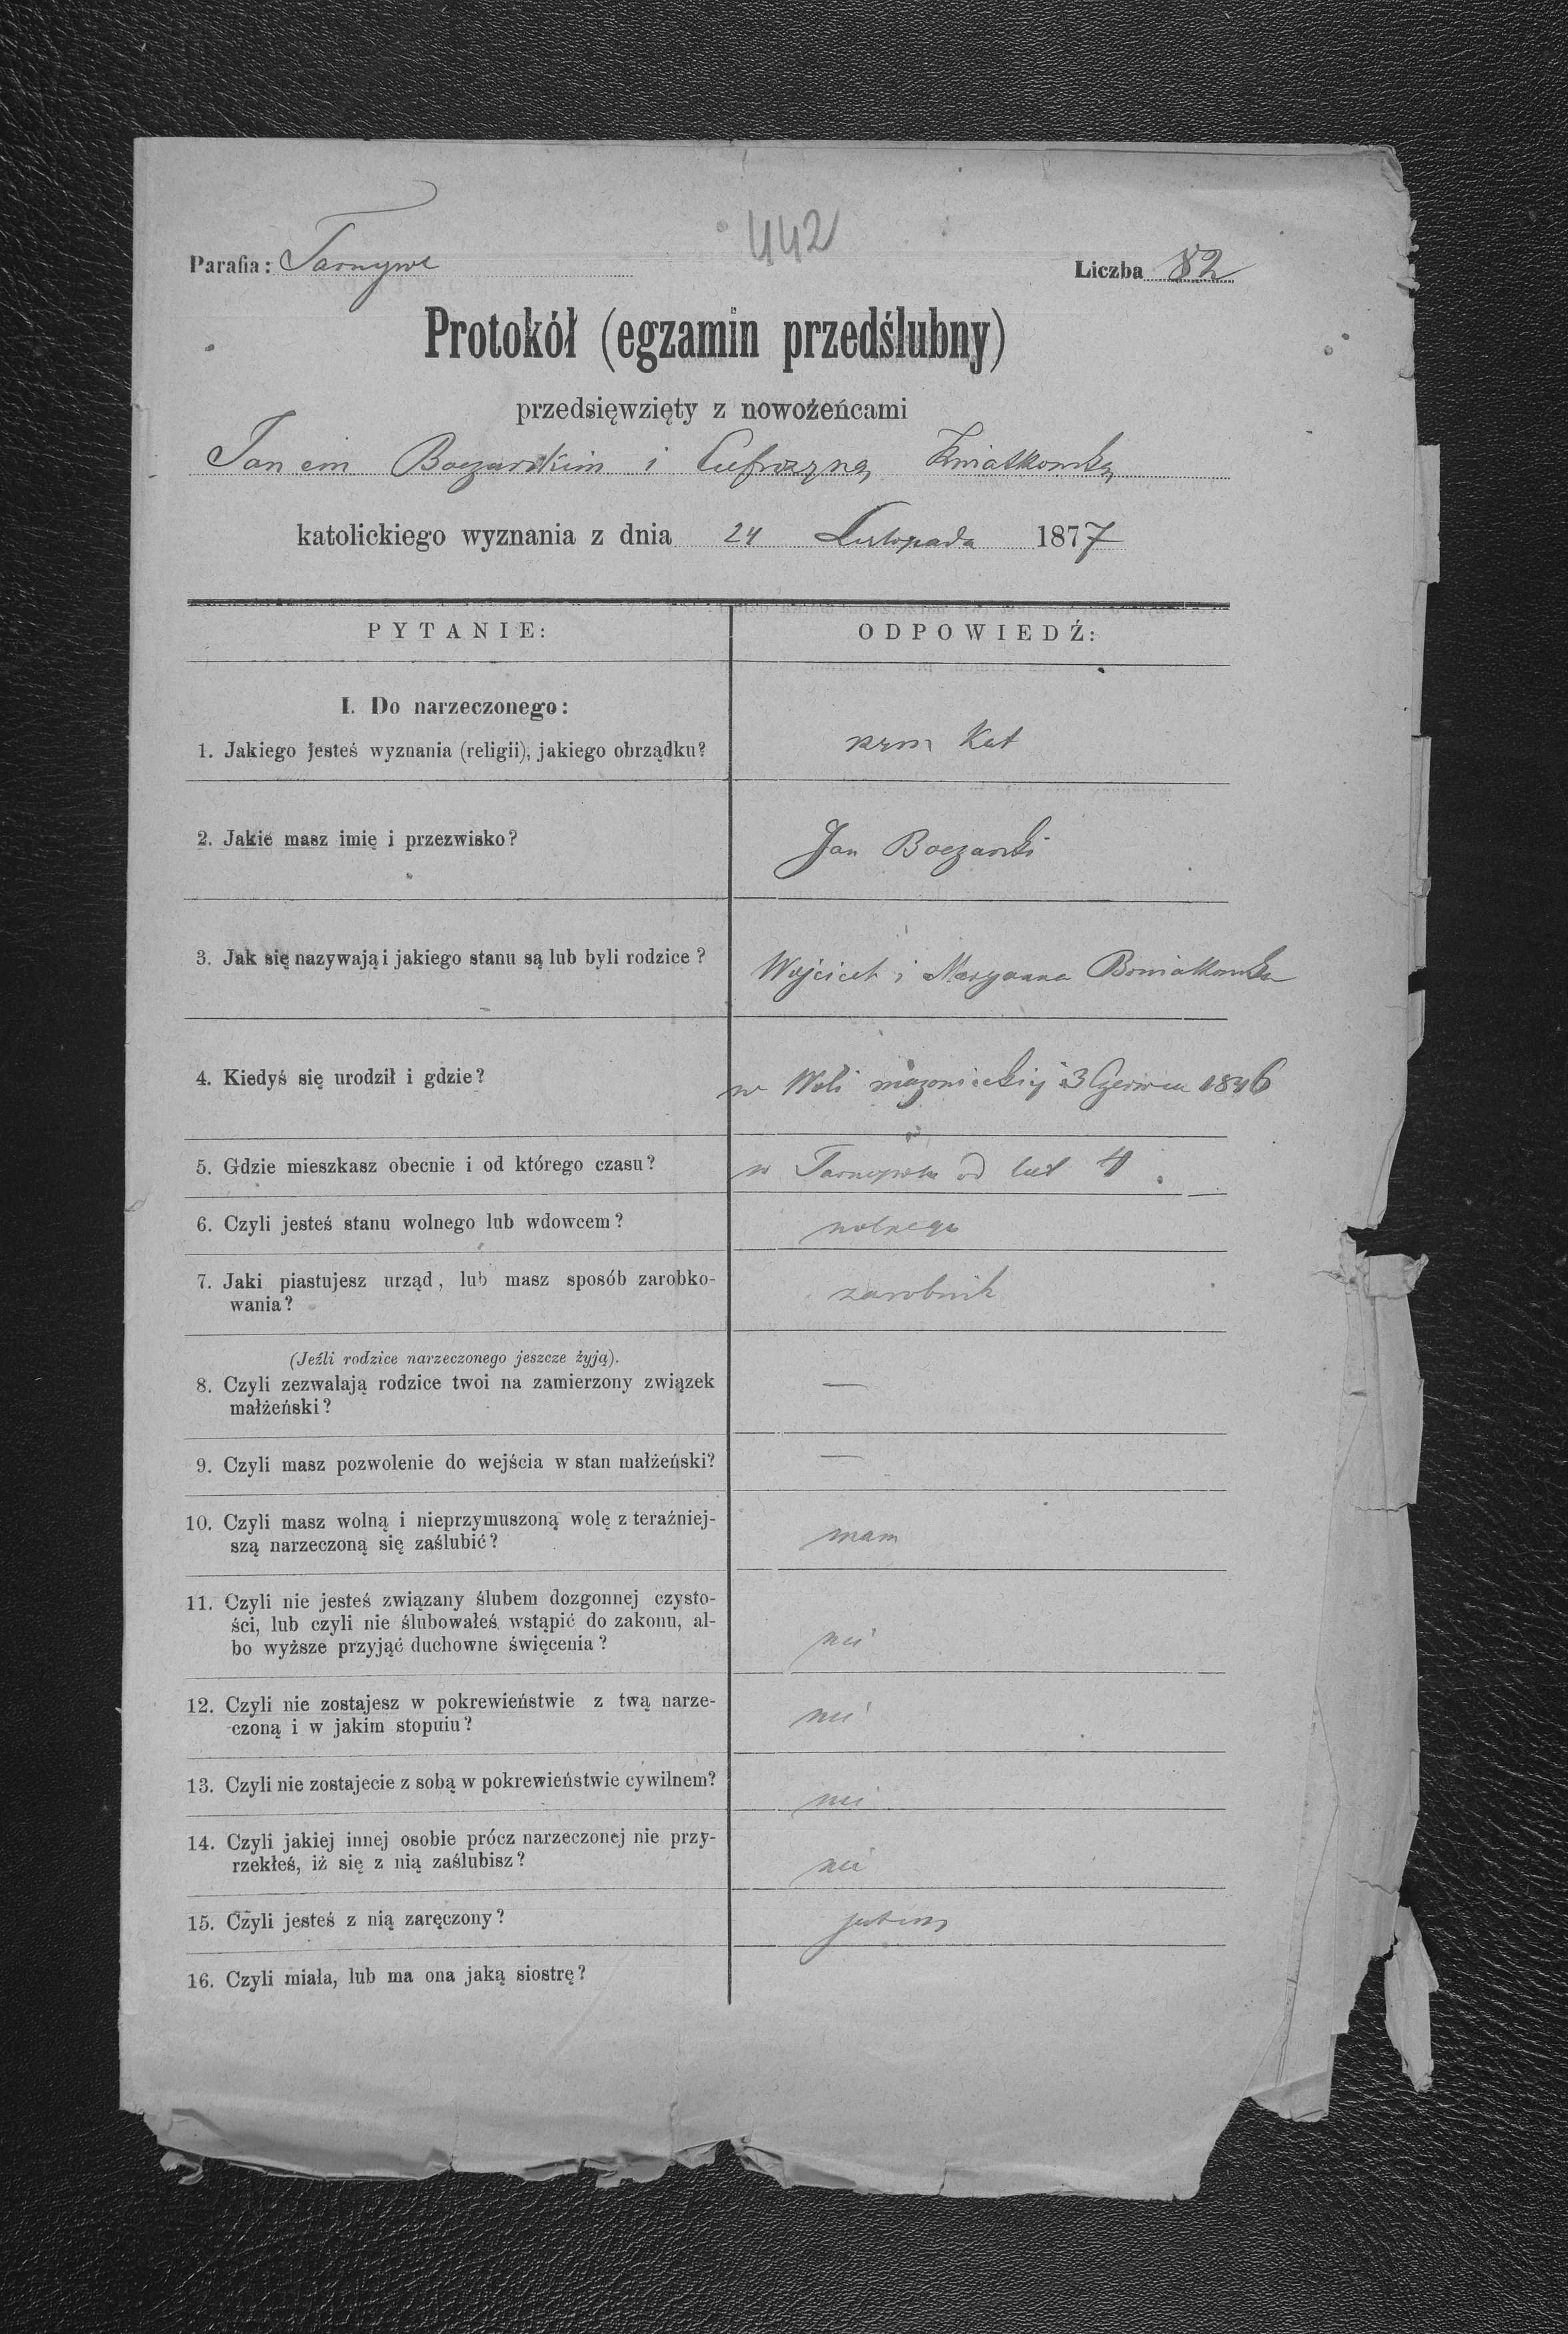 442
Parafia: Liczba 82
Protokół (egzamin przedślubny)
przedsięwzięty z nowożeńcami
Janem i Eufrozyną Kwiatkowską
katolickiego wyznania z dnia 24 Listopada 1877
PYTANIE: ODPOWIEDŹ:
I. Do narzeczonego:
1. Jakiego jesteś wyznania (religii), jakiego obrządku? rzym Kat
2. Jakie masz imię i przezwisko? Jan Boczarski
3. Jak się nazywają i jakiego stanu są lub byli rodzice? Wojciech i Maryanna
4. Kiedyś się urodził i gdzie? w Woli 3 Czerwca 1846
5. Gdzie mieszkasz obecnie i od którego czasu? w od lat 4.
6. Czyli jesteś stanu wolnego lub wdowcem? wolnego
7. Jaki piastujesz urząd, lub masz sposób zarobko-
wania? zarobnik
(Jeźli rodzice narzeczonego jeszcze żyją).
8. Czyli zezwalają rodzice twoi na zamierzony związek —
małżeński?
9. Czyli masz pozwolenie do wejścia w stan małżeński? —
10. Czyli masz wolną i nieprzymuszoną wolę z teraźniej-
szą narzeczoną się zaślubić? mam
11. Czyli nie jesteś związany ślubem dozgonnej czysto-
ści, lub czyli nie ślubowałeś wstąpić do zakonu, al-
bo wyższe przyjąć duchowne święcenia? nie
12. Czyli nie zostajesz w pokrewieństwie z twą narze-
czoną i w jakim stopuiu? nie
13. Czyli nie zostajecie z sobą w pokrewieństwie cywilnem? nie
14. Czyli jakiej innej osobie prócz narzeczonej nie przy-
rzekłeś, iż się z nią zaślubisz? nie
15. Czyli jesteś z nią zaręczony? jestem
16. Czyli miała, lub ma ona jaką siostrę?